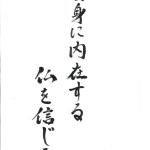 身に内在する
仏を信じ